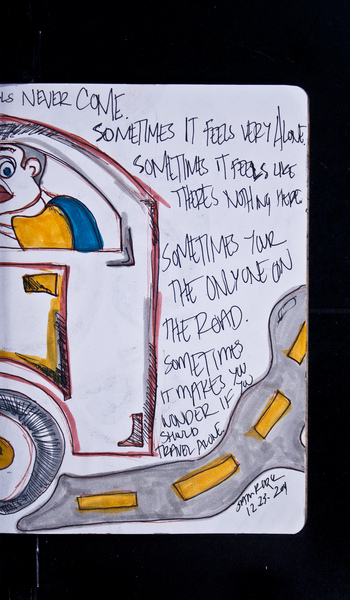 LS NEVER COME.
SOMETIMES IT FEELS VERY ALONE.
SOMETIMES IT FEELS LIKE
THERES NOTHING MORE
SOMETIMES YOUR
THE ONLY ONE ON
THE ROAD.
SOMETIMES
IT MAKES YOU
WONDER IF YOU
SHOULD
TRAVEL ALONE